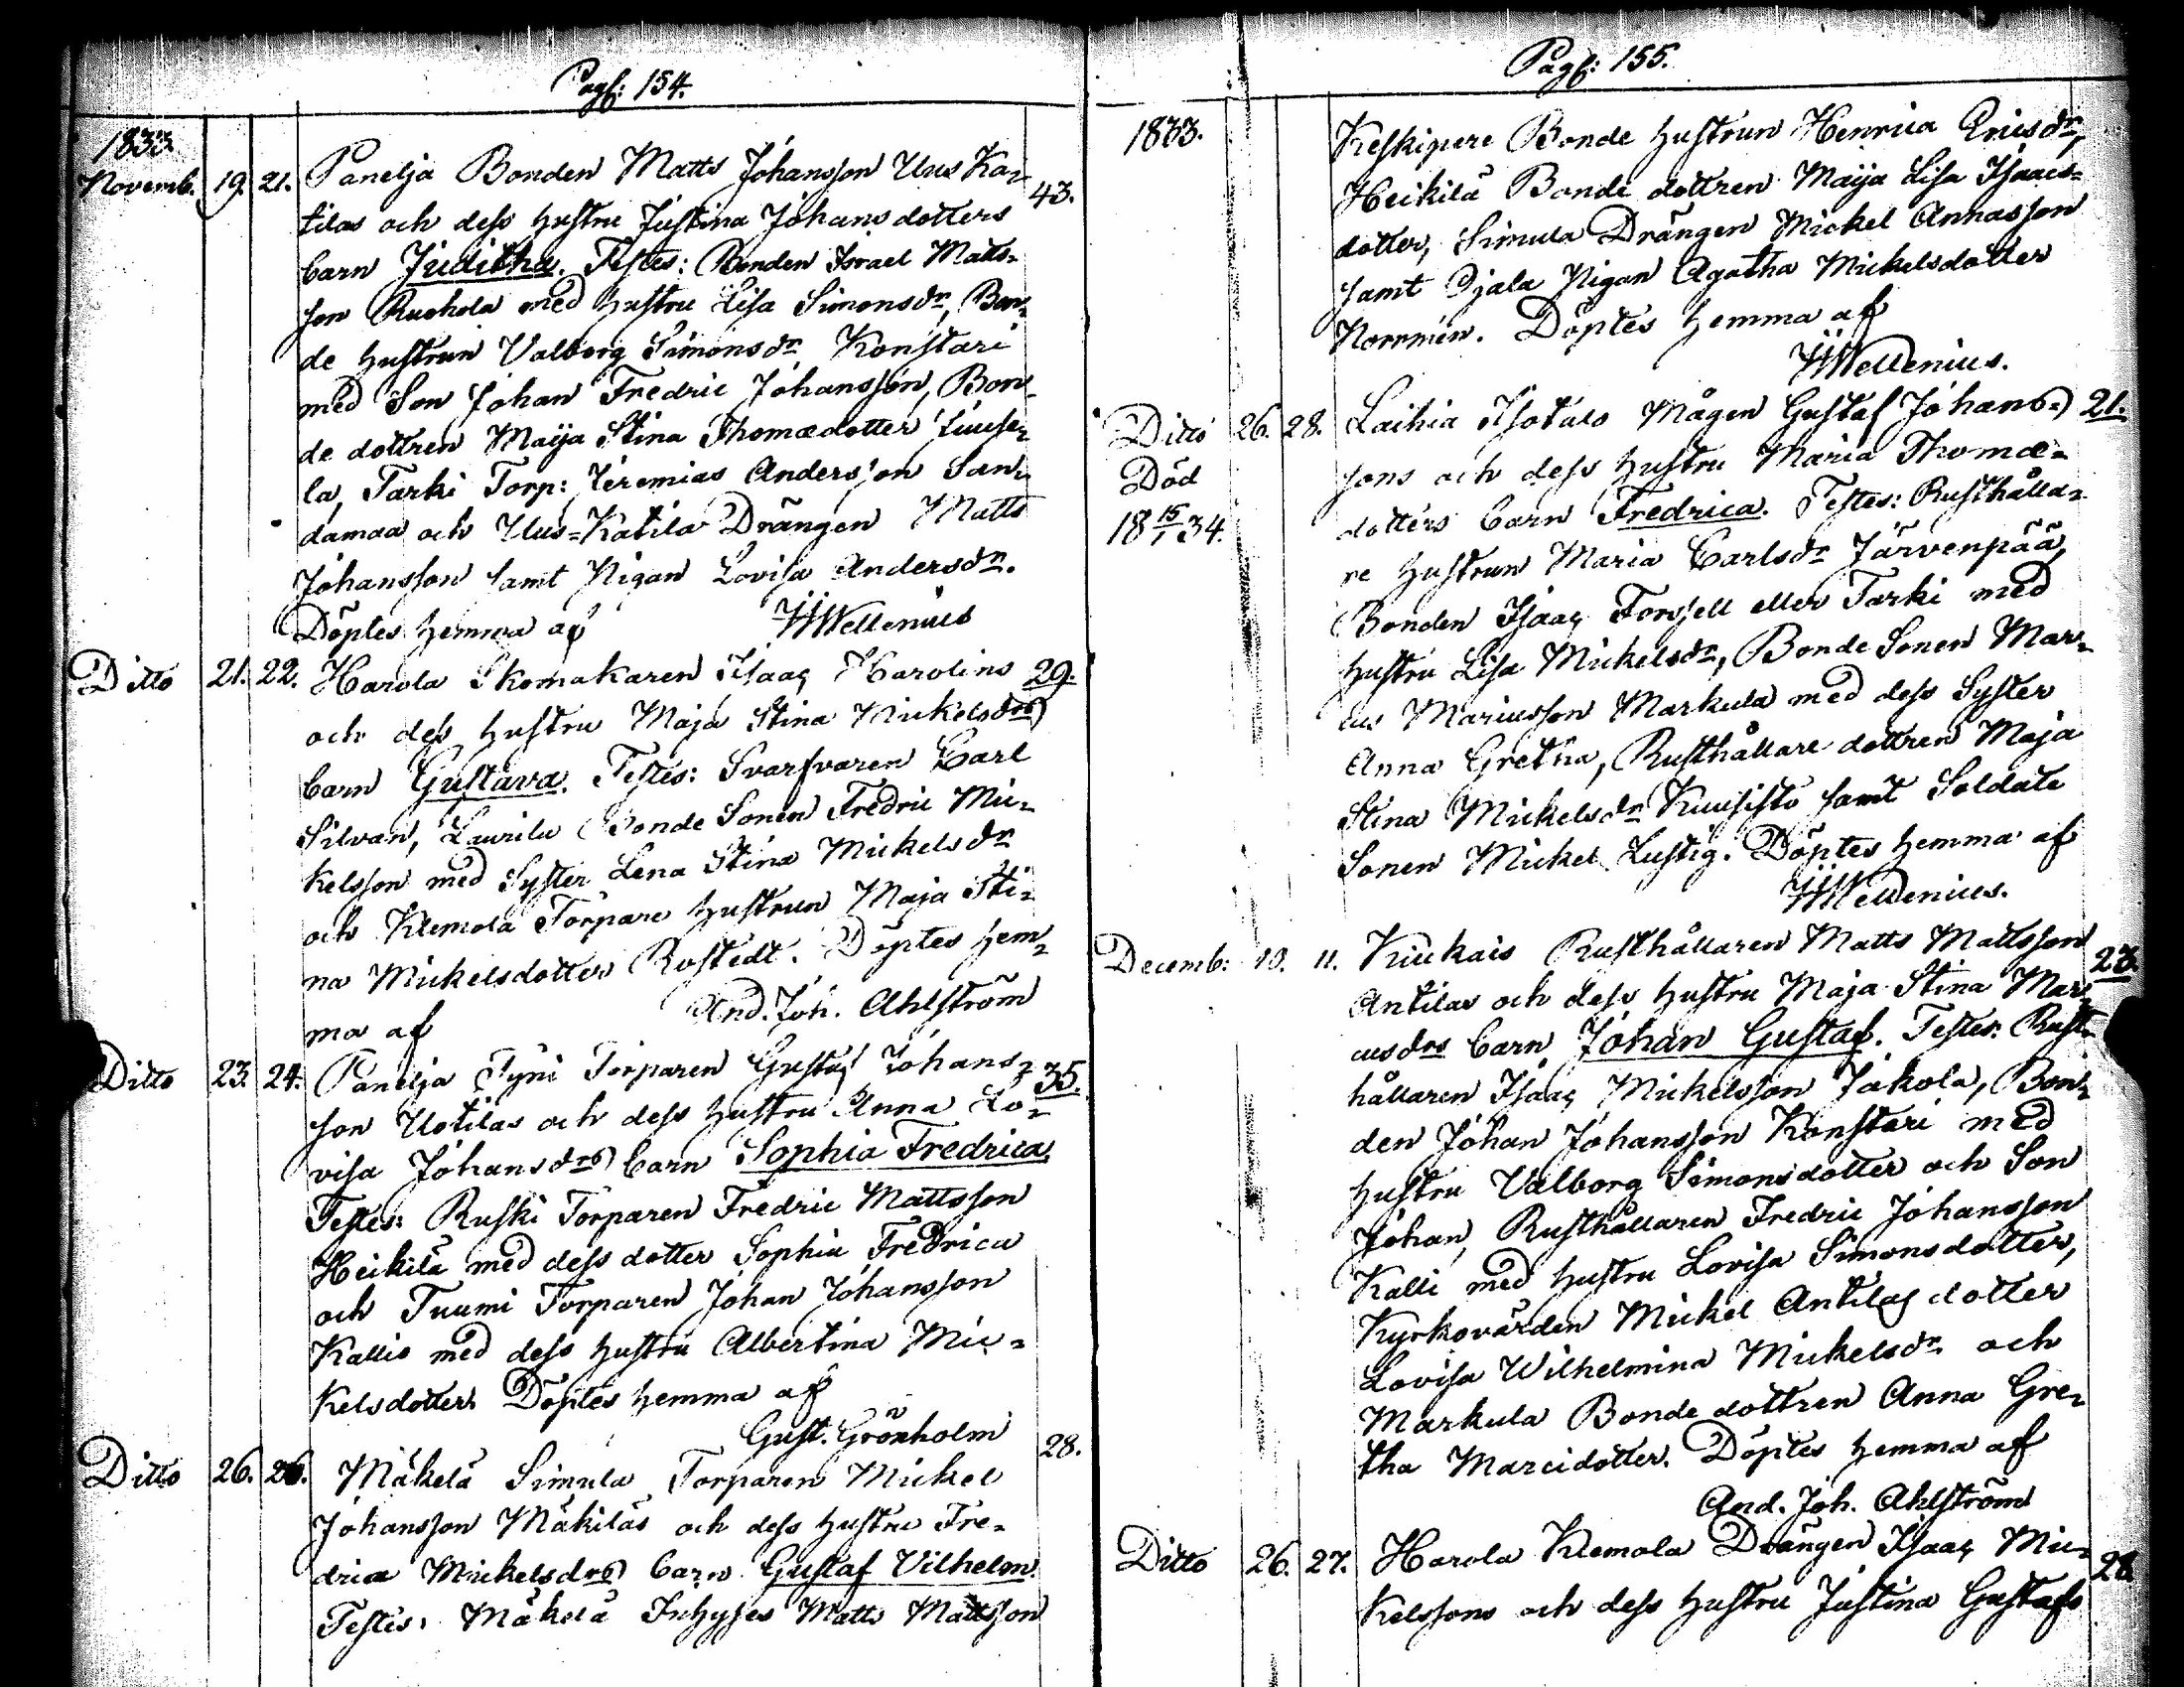 Pag: 154.
1833.
Novemb. 19. 21. Panelja Bonden Matts Johansson Uus Ka- 43.
tilas och dess hustru Justina Johans dotters
barn Juditha. Testes: Bonden Israel Matts-
son Ruohola med hustru Lisa Simonsdr, Bon-
de hustrun Valborg Simonsdr Konstari
med Son Johan Fredric Johansson, Bon-
de dottren Maija Stina Thomædotter
la, Tarki Torp: Jeremias Andersson San-
damaa och Uus-Katila Drängen Matts
Johansson samt Pigan Lovisa Andersdr.
Döptes hemma af Wellenius
Ditto 21. 22. Harola Skomakaren Isaac Harolins 29.
och dess hustru Maja Stina Mickelsdrs
barn Gustava. Testes: Svarfvaren Carl
Silvan, Laurila Bonde Sonen Fredric Mic-
kelsson med Syster Lena Stina Mickelsdr
och Klemola Torpare hustrun Maja Sti-
na Mickelsdotter Rostedt. Döptes hem-
ma af And. Joh. Ahlström
Ditto 23. 24. Panelja Tyni Torparen Gustaf Johans- 35.
son Uotilas och dess hustru Anna Lo-
visa Johansdrs barn Sophia Fredrica.
Testes: Ruski Torparen Fredric Mattsson
Heikilä med dess dotter Sophia Fredrica
och Tuumi Torparen Johan Johansson
Kallio med dess hustru Albertina Mic-
kelsdotter. Döptes hemma af
Gust. Grönholm
Ditto 26. 26. Mäkelä Simula Torparen Mickel 28.
Johansson Mäkiläs och dess hustru Fre-
drica Mickelsdrs barn Gustaf Vilhelm.
Testes: Mäkelä Inhyses Matts Mattsson
Pag: 155.
1833. Keskipere Bonde hustrun Henrica Ericsdr,
Heikilä Bonde dottren Maija Lisa Isaacs-
dotter, Simula Drängen Mickel Annasson
samt Ojala Pigan Agatha Mickelsdotter
Norrmén. Döptes hemma af
Wellenius.
Ditto 26. 28. Laihia Isotalo Mågen Gustaf Johans- 21.
Död sons och dess hustru Maria Thomæ-
18 15/1 34. dotters barn Fredrica. Testes: Rusthålla-
re hustrun Maria Carlsdr Järvenpää,
Bonden Isaac Forssell eller Tarki med
hustru Lisa Mickelsdr, Bonde Sonen Mar-
cus Marcusson Markula med dess Syster
Anna Gretha, Rusthållare dottren Maja
Stina Mickelsdr Kuusisto samt Soldate
Sonen Mickel Lustig. Döptes hemma af
Wellenius.
Decemb: 10. 11. Kiukais Rusthållaren Matts Mattsson 23.
Antilas och dess hustru Maja Stina Mar-
cusdrs barn Johan Gustaf. Testes: Rust-
hållaren Isaac Mickelsson Jakola, Bon-
den Johan Johansson Konstari med
hustru Valborg Simonsdotter och Son
Johan, Rusthållaren Fredric Johansson
Kalli med hustru Lovisa Simonsdotter,
Kyrkovärden Mickel Antilas dotter
Lovisa Wilhelmina Mickelsdr och
Markula Bonde dottren Anna Gre-
tha Marcidotter. Döptes hemma af
And. Joh. Ahlström
Ditto 26. 27. Harola Klemola Drängen Isaac Mic- 28
kelssons och dess hustru Justina Gustafs